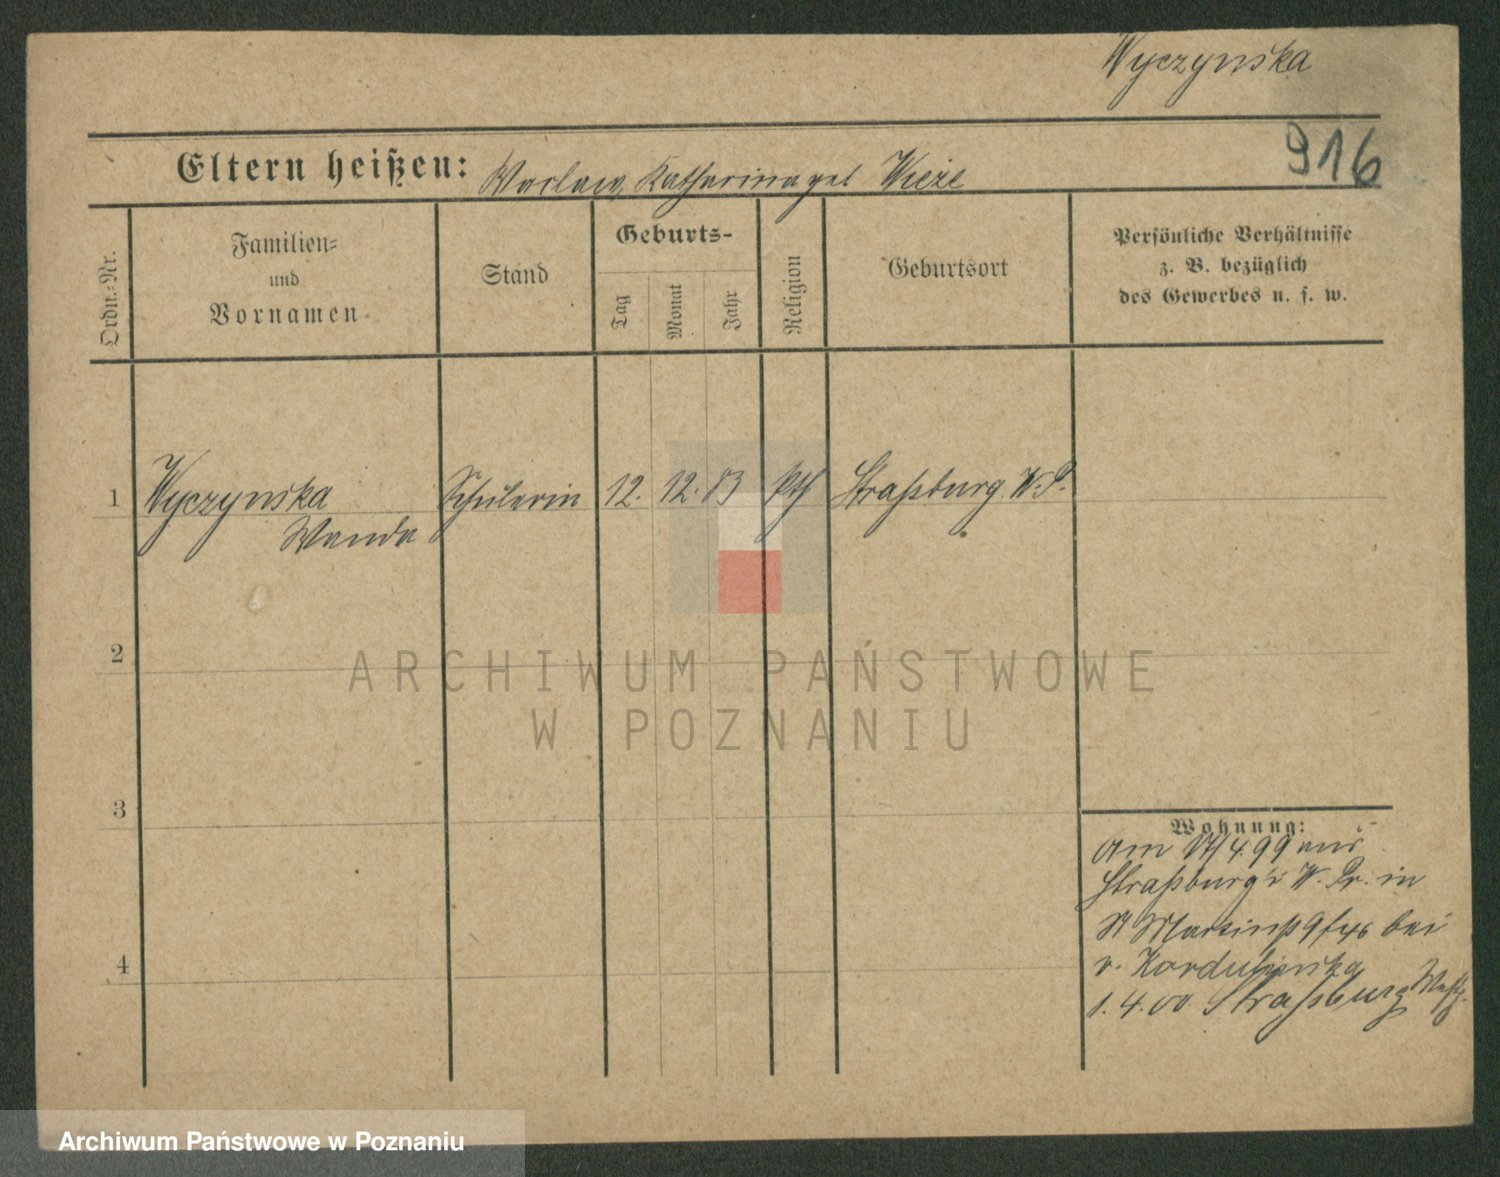 Wyczynska
916
Eltern heißen: Waclaw, Katharina geb
Ordn.-Nr.
Familien-
und
Vornamen
Stand
Geburts-
Tag
Monat
Jahr
Religion
Geburtsort
Persönliche Verhältnisse
z. B. bezüglich
des Gewerbes u. s. w.
1
Wyczynska
Wanda
Schülerin
12.
12.
83
kth
Straßburg W. P.
2
3
4
Wohnung:
Am 17/4 99 aus
Straßburg i W. Pr. in
St Martinst 9/46 bei
v.
1. 4. 00. Straßburg Westp.
ARCHIWUM PAŃSTWOWE
W POZNANIU
Archiwum Państwowe w Poznaniu